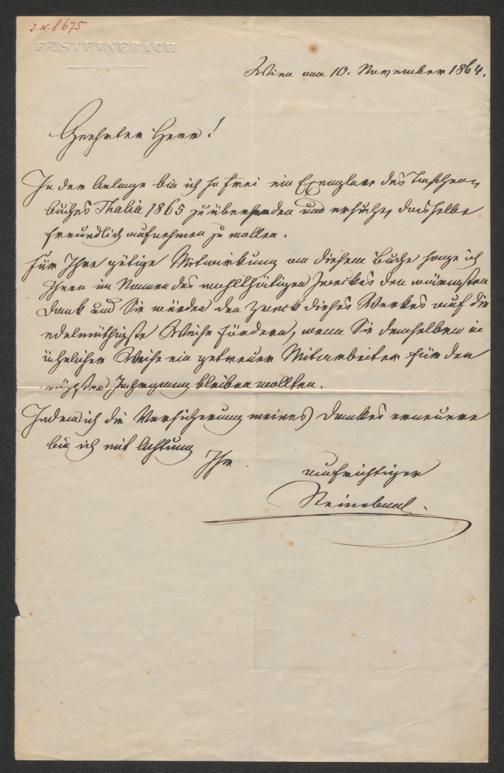 J.N. 8675
F. A. STEINEBACH
Wien am 10. November 1864.
Geehrter Herr!
In der Anlage bin ich so frei ein Exemplar des Taschen-
buches Thalia 1865 zu übersenden und ersuche, dasselbe
freundlich aufnehmen zu wollen.
Für Ihre gütige Mitwirkung an diesem Buche sage ich
Ihnen im Namen des wohlthätigen Zweckes den wärmsten
Dank und Sie würden den Zweck dieses Werkes auf die
edelmüthigste Weise fördern, wenn Sie demselben in
ähnlicher Weise ein getreuer Mitarbeiter für den
nächsten Jahrgang bleiben wollten.
Indem ich die Versicherung meines Dankes erneuere
bin ich mit Achtung
Ihr
aufrichtiger
Steinebach.